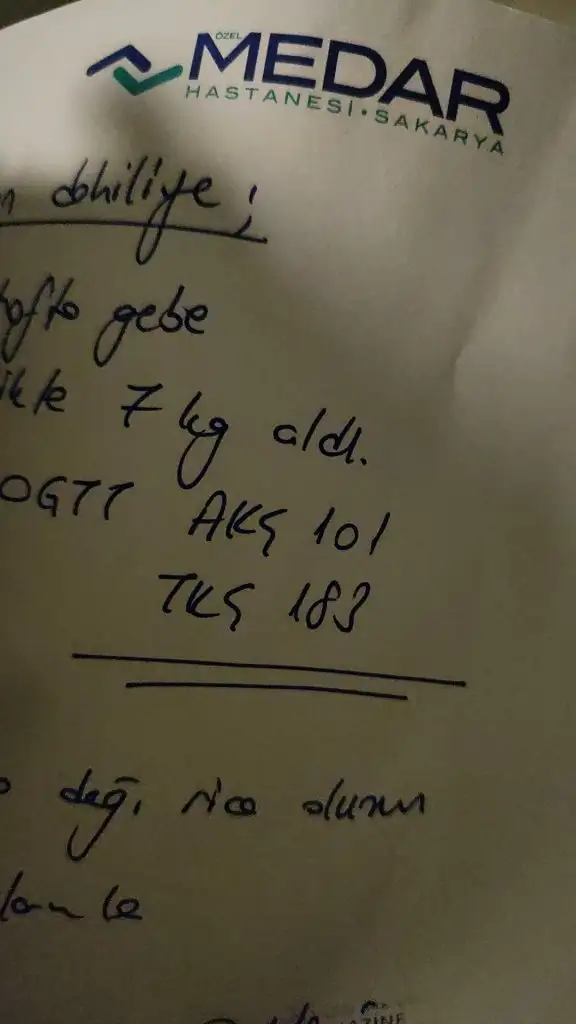 ÖZEL
MEDAR
HASTANESİ • SAKARYA
dahiliye;
hafta gebe
7 kg aldı.
OGTT AKŞ 101
TKŞ 183
değ. rica olunur